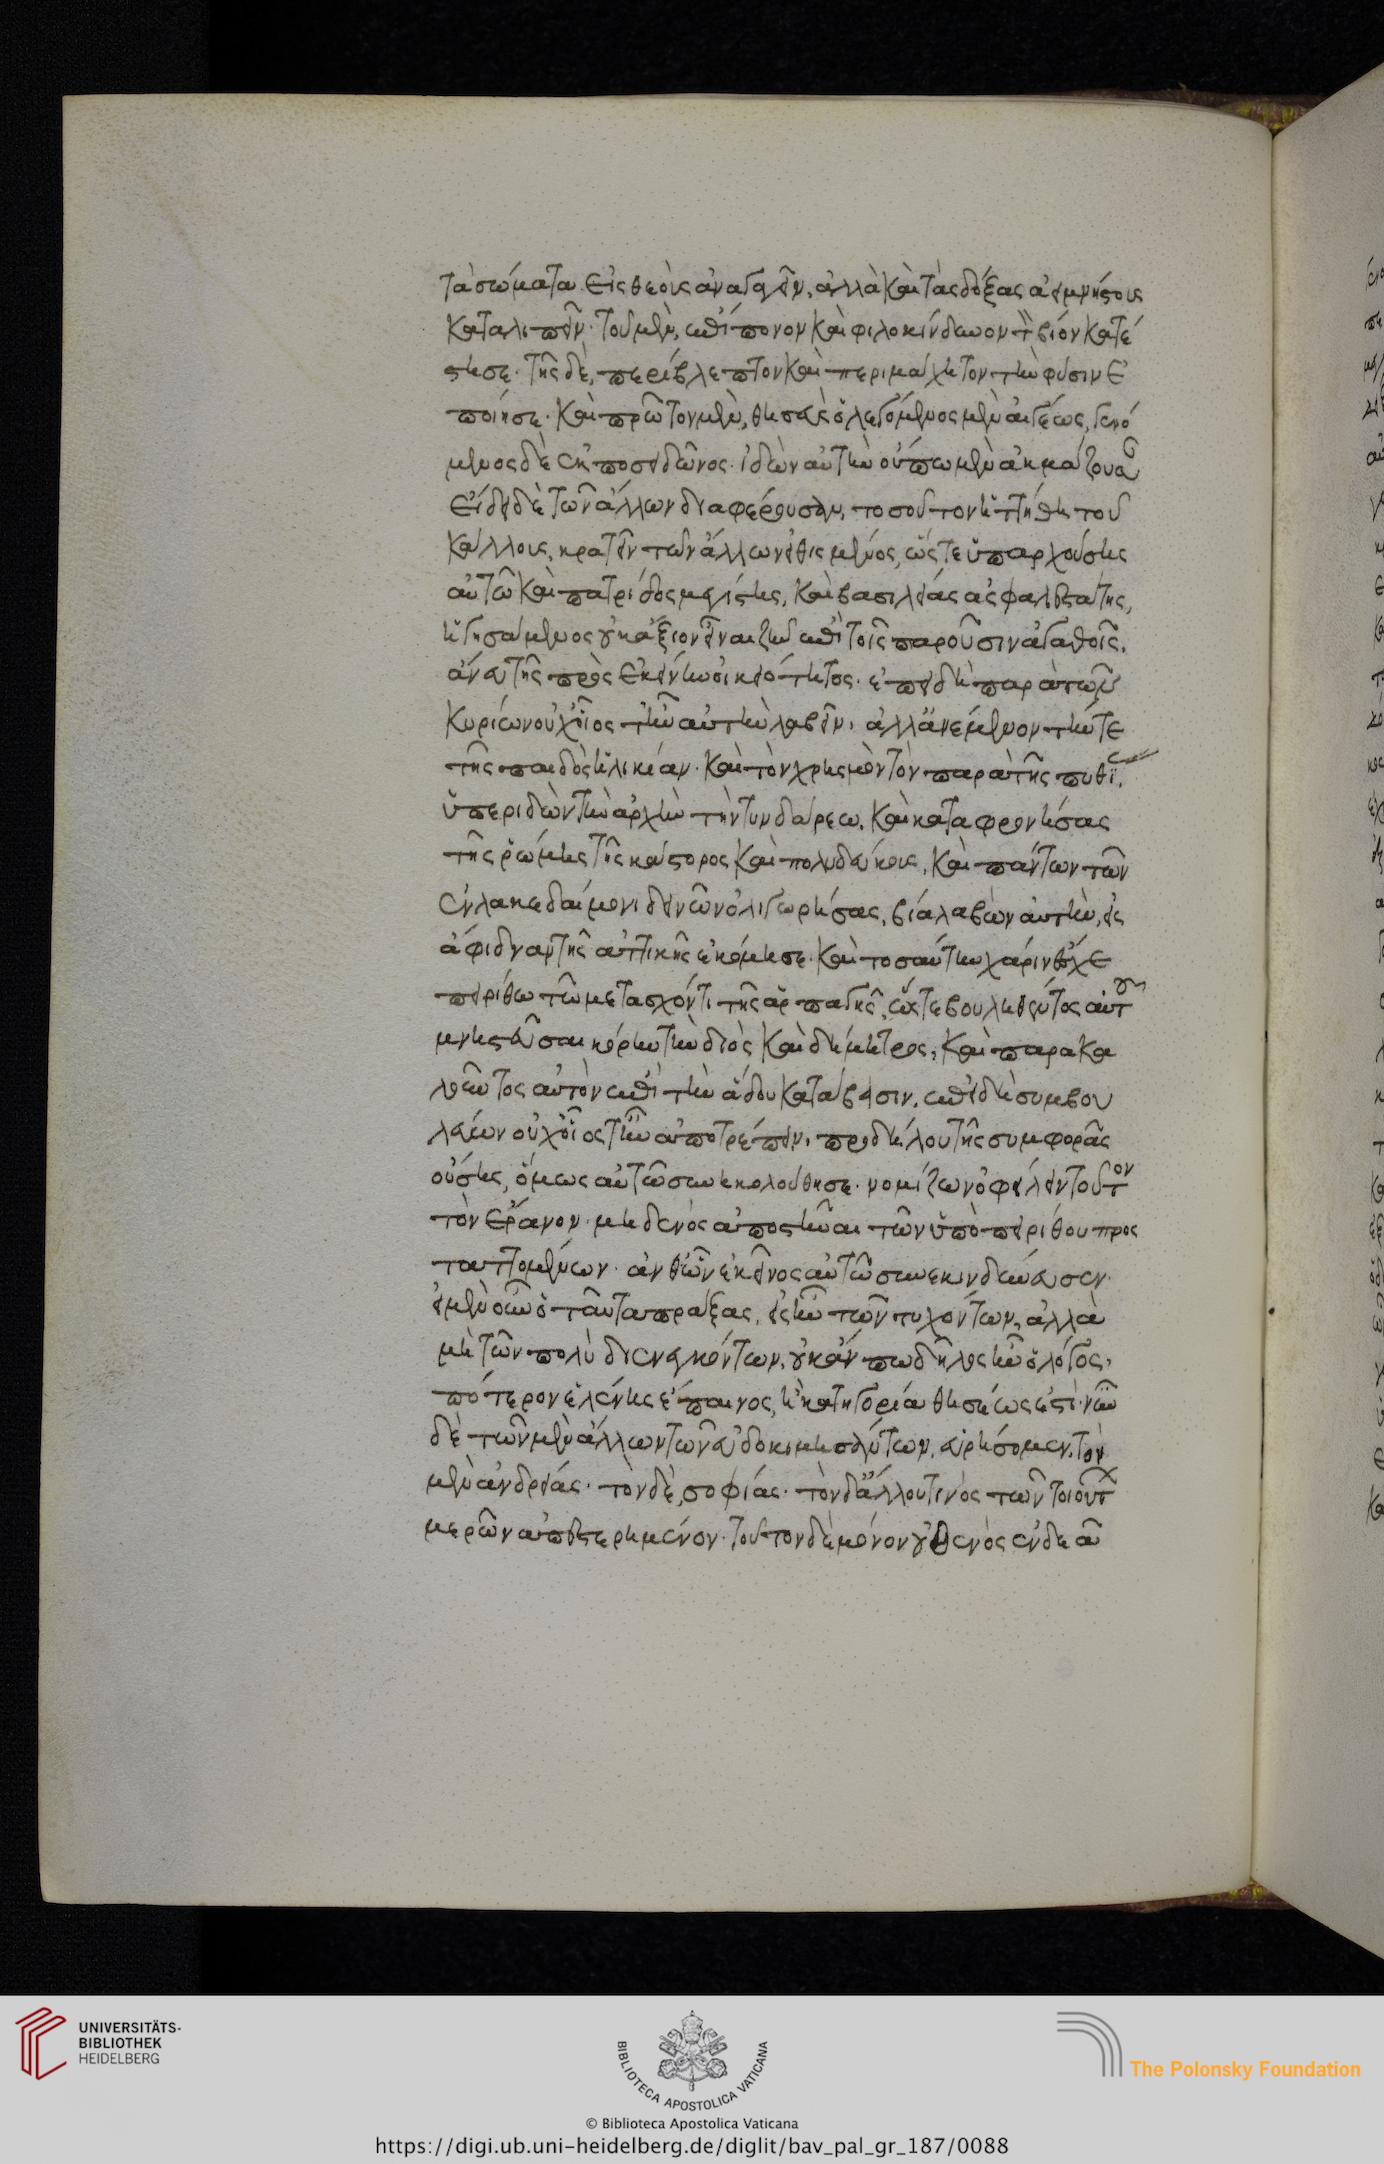 τὰ σώματα εἰς θεοὺς ἀναγαγεῖν, ἀλλὰ καὶ τὰς δόξας ἀειμνήστους
καταλιπεῖν· τοῦ μὲν, ἐπίπονον καὶ φιλοκίνδυνον τὸν βίον κατέ
στησε· τῆς δὲ, περίβλεπτον καὶ περιμάχητον τὴν φύσιν ἐ
ποίησε· καὶ πρῶτον μὲν, θησεὺς ὁ λεγόμενος μὲν αἰγέως, γενό
μενος δὲ ἐκ ποσειδῶνος· ἰδὼν αὐτὴν οὔπω μὲν ἀκμάζουσαν
ἤδη δὲ τῶν ἄλλων διαφέρουσαν, τοσοῦτον ἡττήθη τοῦ
κάλλους, κρατεῖν τῶν ἄλλων εἰθισμένος, ὥστε ὑπαρχούσης
αὐτῶ καὶ πατρίδος μεγίστης, καὶ βασιλείας ἀσφαλεστάτης,
ἡγησάμενος οὐκ ἄξιον εἶναι ζῆν ἐπὶ τοῖς παροῦσιν ἀγαθοῖς,
ἄνευ τῆς πρὸς ἐκείνην οἰκειότητος· ἐπειδὴ παρὰ τῶν
κυρίων οὐχ οἷος τ' ἦν αὐτὴν λαβεῖν, ἀλλ' ἀνέμενον τήν τε
τῆς παιδὸς ἡλικίαν· καὶ τὸν χρησμὸν τὸν παρὰ τῆς πυθίας,
ὑπεριδὼν τὴν ἀρχὴν τὴν τυνδάρεω, καὶ καταφρονήσας
τῆς ῥώμης τῆς κάστορος καὶ πολυδεύκους, καὶ πάντων τῶν
ἐν λακεδαίμονι δεινῶν ὀλιγωρήσας, βία λαβὼν αὐτὴν, εἰς
ἄφιδναν τῆς ἀττικῆς ἐκόμισε· καὶ τοσαύτην χάριν ἔσχε
πειρίθω τῶ μετασχόντι τῆς ἁρπαγῆς, ὥστε βουληθέντος αὐτοῦ
μνηστεῦσαι κόρην τὴν διὸς καὶ δήμητρος, καὶ παρακα
λοῦντος αὐτὸν ἐπὶ τὴν ἅδου κατάβασιν, ἐπειδὴ συμβου
λεύων οὐχ οἷος τ' ἦν ἀποτρέπειν, προδήλου τῆς συμφορᾶς
οὔσης, ὅμως αὐτῶ συνηκολούθησε· νομίζων ὀφείλειν τοῦτον
τὸν ἔρανον· μηδενὸς ἀποστῆναι τῶν ὑπὸ πειρίθου προσ
ταττομένων· ἀνθ' ὧν ἐκεῖνος αὐτῶ συνεκινδύνευσεν·
εἰ μὲν οὖν ὁ ταῦτα πράξας, εἷς ἦν τῶν τυχόντων, ἀλλὰ
μὴ τῶν πολὺ διενεγκόντων, οὐκ ἄν πω δῆλος ἦν ὁ λόγος,
πότερον ἑλένης ἔπαινος, ἢ κατηγορία θησέως ἐστί· νῦν
δὲ τῶν μὲν ἄλλων τῶν εὐδοκιμησάντων, εὑρήσομεν, τὸν
μὲν ἀνδρείας· τὸν δὲ, σοφίας· τὸν δ' ἄλλου τινὸς τῶν τοιούτων
μερῶν ἀπεστερημένον· τοῦτον δὲ μόνον οὐδενὸς ἐνδεᾶ
UNIVERSITÄTS-
BIBLIOTHEK
HEIDELBERG
BIBLIOTECA APOSTOLICA VATICANA
The Polonsky Foundation
© Biblioteca Apostolica Vaticana
https://digi.ub.uni-heidelberg.de/diglit/bav_pal_gr_187/0088